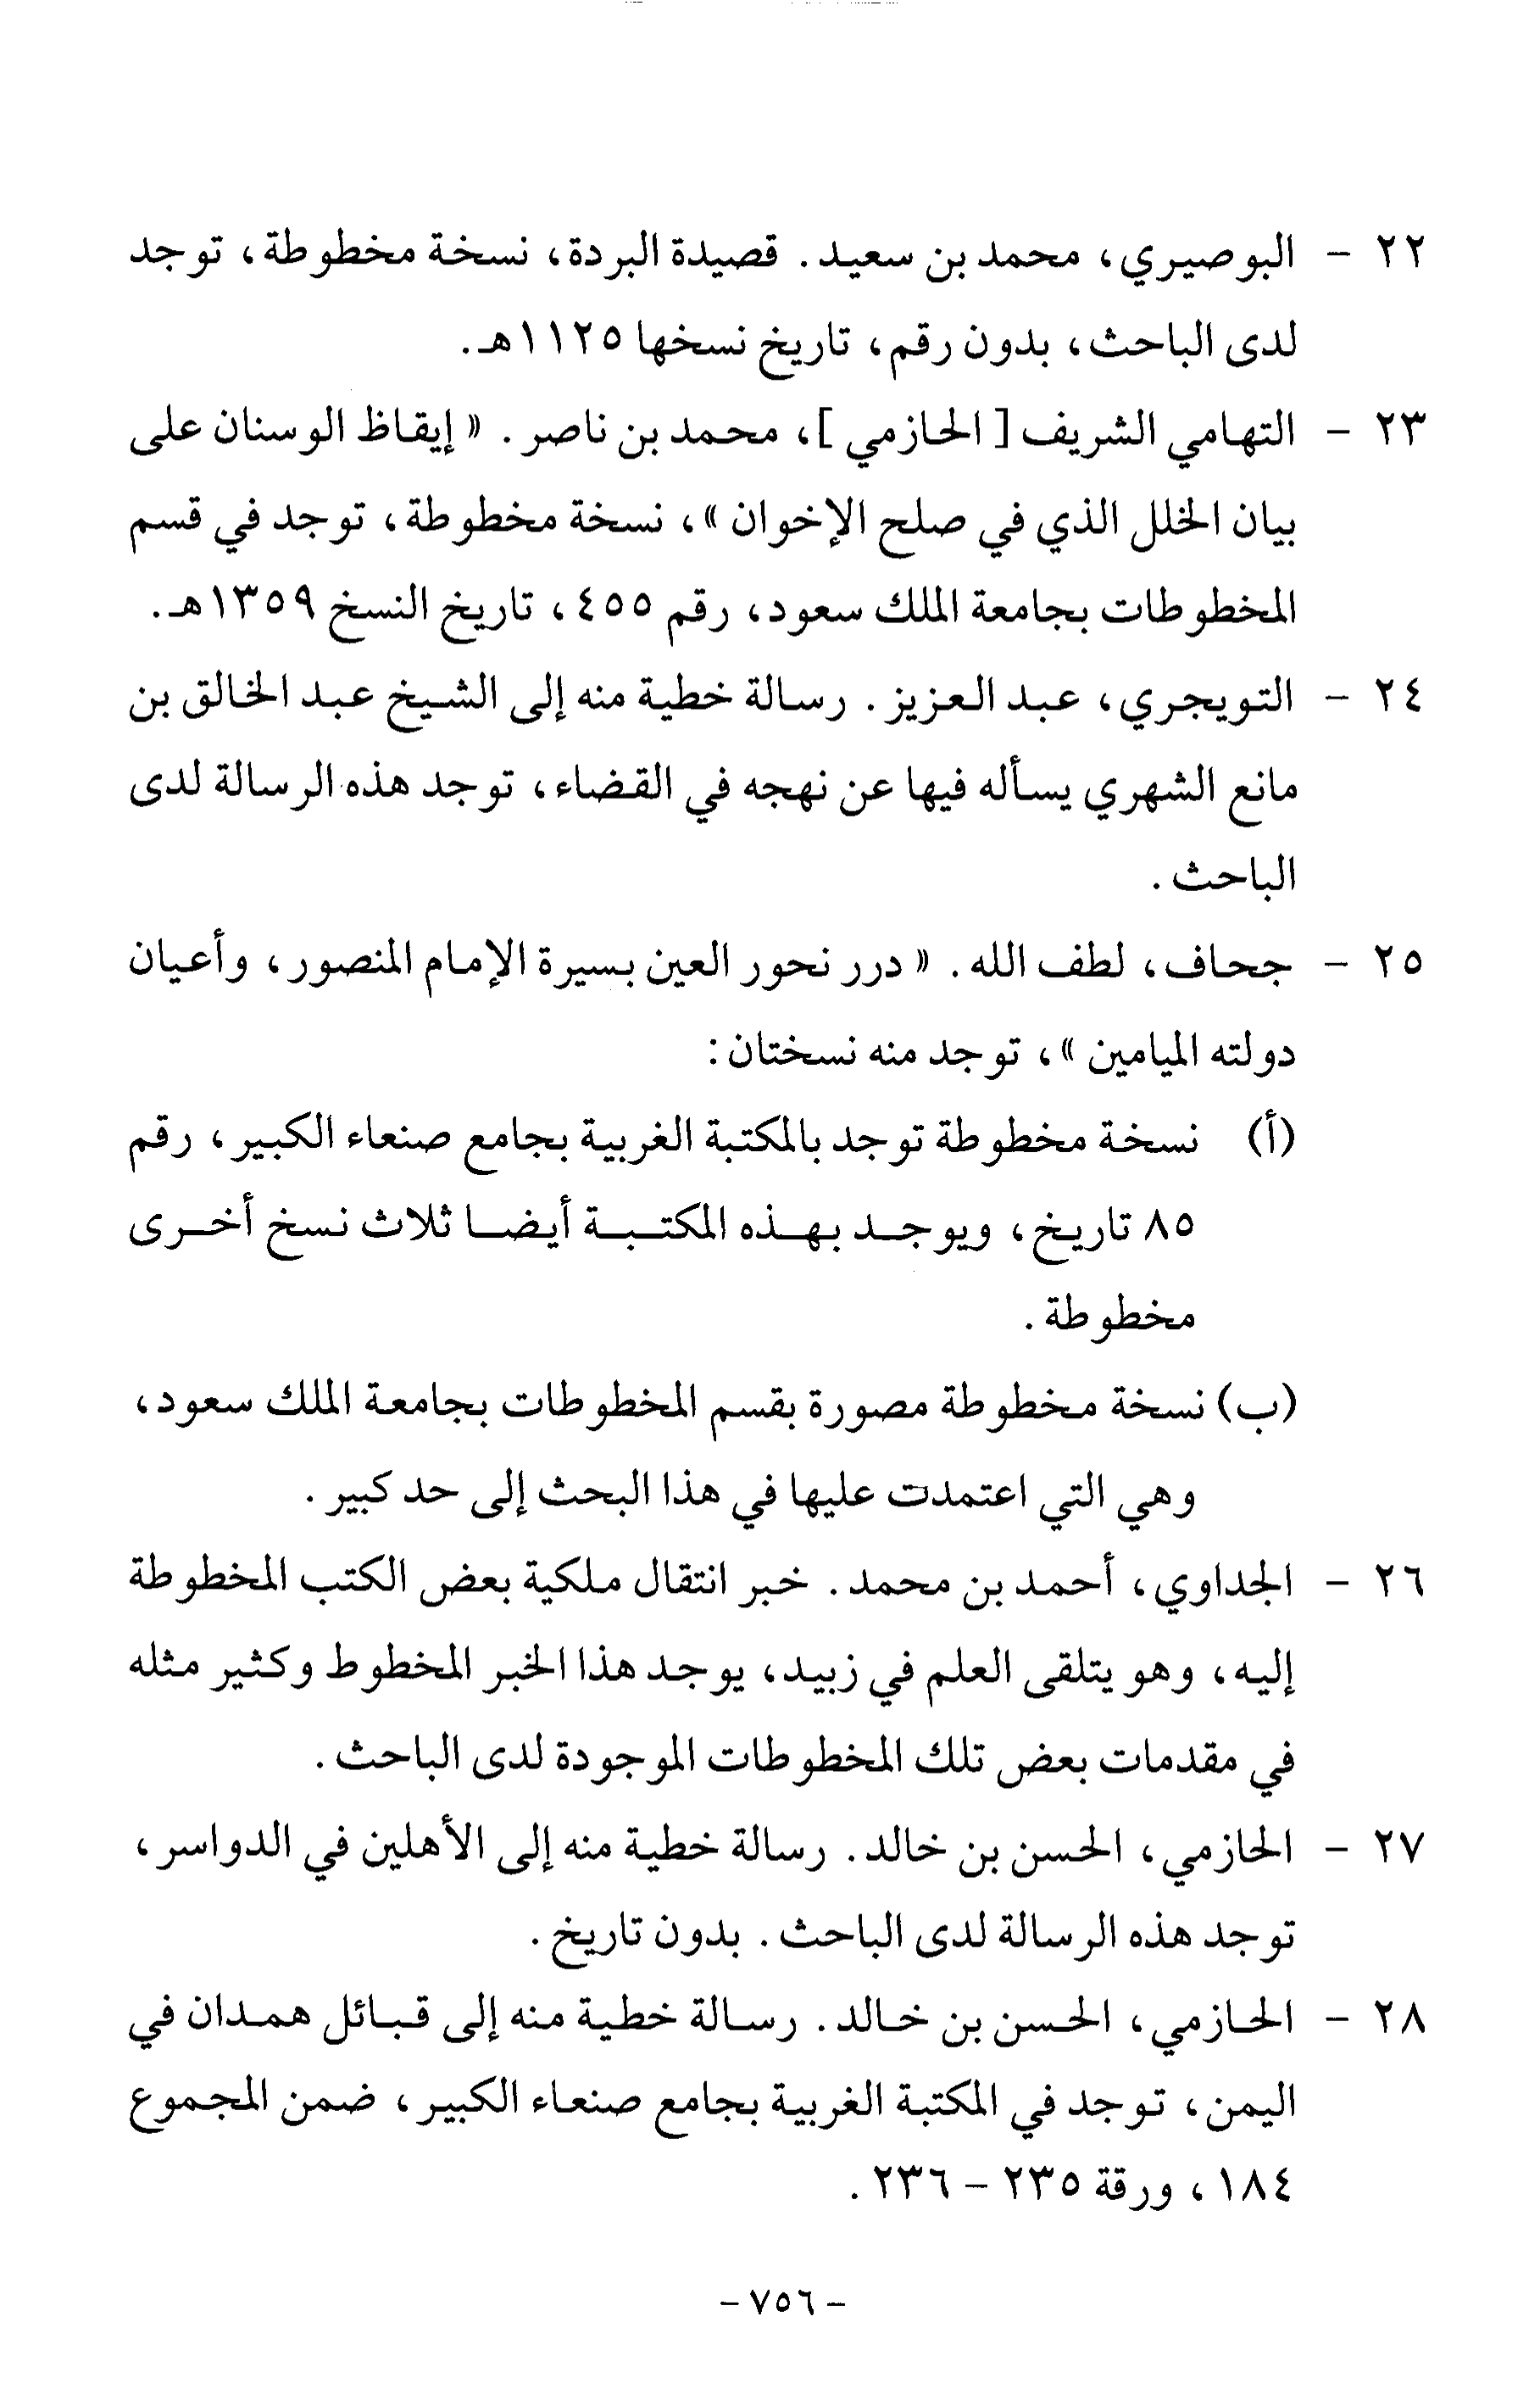 ٢٢ - البوصيري، محمد بن سعيد. قصيدة البردة، نسخة مخطوطة، توجد
لدى الباحث، بدون رقم، تاريخ نسخها ١١٢٥هـ.
٢٣ - التهامي الشريف [ الحازمي ]، محمد بن ناصر. « إيقاظ الوسنان على
بيان الخلل الذي في صلح الإخوان »، نسخة مخطوطة، توجد في قسم
المخطوطات بجامعة الملك سعود، رقم ٤٥٥، تاريخ النسخ ١٣٥٩هـ.
٢٤ - التويجري، عبد العزيز. رسالة خطية منه إلى الشيخ عبد الخالق بن
مانع الشهري يسأله فيها عن نهجه في القضاء، توجد هذه الرسالة لدى
الباحث.
٢٥ - جحاف، لطف الله. « درر نحور العين بسيرة الإمام المنصور، وأعيان
دولته الميامين »، توجد منه نسختان:
(أ) نسخة مخطوطة توجد بالمكتبة الغربية بجامع صنعاء الكبير، رقم
٨٥ تاريخ، ويوجد بهذه المكتبة أيضا ثلاث نسخ أخرى
مخطوطة.
(ب) نسخة مخطوطة مصورة بقسم المخطوطات بجامعة الملك سعود،
وهي التي اعتمدت عليها في هذا البحث إلى حد كبير.
٢٦ - الجداوي، أحمد بن محمد. خبر انتقال ملكية بعض الكتب المخطوطة
إليه، وهو يتلقى العلم في زبيد، يوجد هذا الخبر المخطوط وكثير مثله
في مقدمات بعض تلك المخطوطات الموجودة لدى الباحث.
٢٧ - الحازمي، الحسن بن خالد. رسالة خطية منه إلى الأهلين في الدواسر،
توجد هذه الرسالة لدى الباحث. بدون تاريخ.
٢٨ - الحازمي، الحسن بن خالد. رسالة خطية منه إلى قبائل همدان في
اليمن، توجد في المكتبة الغربية بجامع صنعاء الكبير، ضمن المجموع
١٨٤، ورقة ٢٣٥ - ٢٣٦.
- ٧٥٦ -